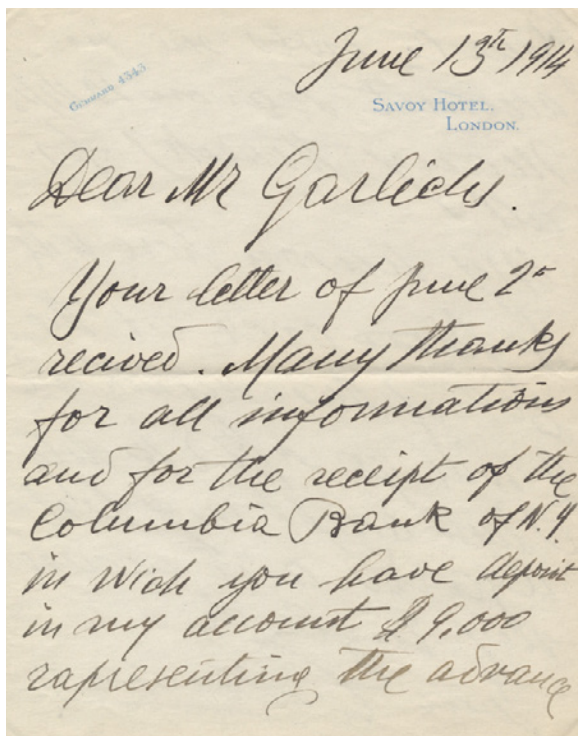 June 13th 1914
GERRARD 4343
SAVOY HOTEL,
LONDON.
Dear Mr Garlichs.
Your letter of June 2d
recived. Many thanks
for all informations
and for the receipt of the
Columbia Bank of N.Y.
in wich you have deposit
in my account $ 9,000
rapresenting the advance